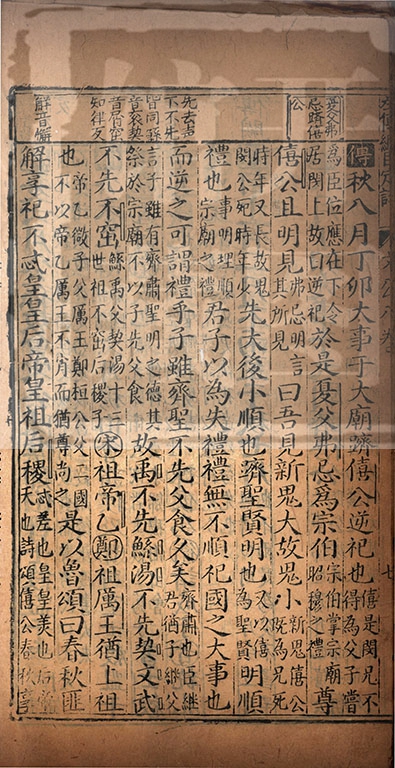 夏父弗
忌躋僖
公
先去声
下不先
皆同
知律反
解音懈
傳秋八月丁卯大事于大廟躋僖公逆祀也僖是閔兄不得為父子嘗
為臣位應在下令居閔上故曰逆祀於是夏父弗忌為宗伯宗伯掌宗廟昭穆之禮尊
僖公且明見弗忌明言其所見曰吾見新鬼大故鬼小新鬼僖公既為兄死
時年又長故鬼閔公死時年少先大後小順也躋聖賢明也又以僖公為聖賢明順
禮也事明理順宗廟之禮君子以為失禮禮無不順祀國之大事也
而逆之可謂禮乎子雖齊聖不先父食久矣齊肅也臣繼君猶子繼父
言子雖有齊肅聖明之德其祭於宗廟不以子先父食故禹不先鯀湯不先契文武
不先不窋鯀禹父契湯十三世祖不窋后稷子宋祖帝乙鄭祖厲王猶上祖
也帝乙微子父厲王鄭桓公父二國不以帝乙厲王不肖而猶尊尚之是以魯頌曰春秋匪
解享祀不忒皇皇后帝皇祖后稷忒差也皇皇美也后帝天也詩頌僖公春秋享